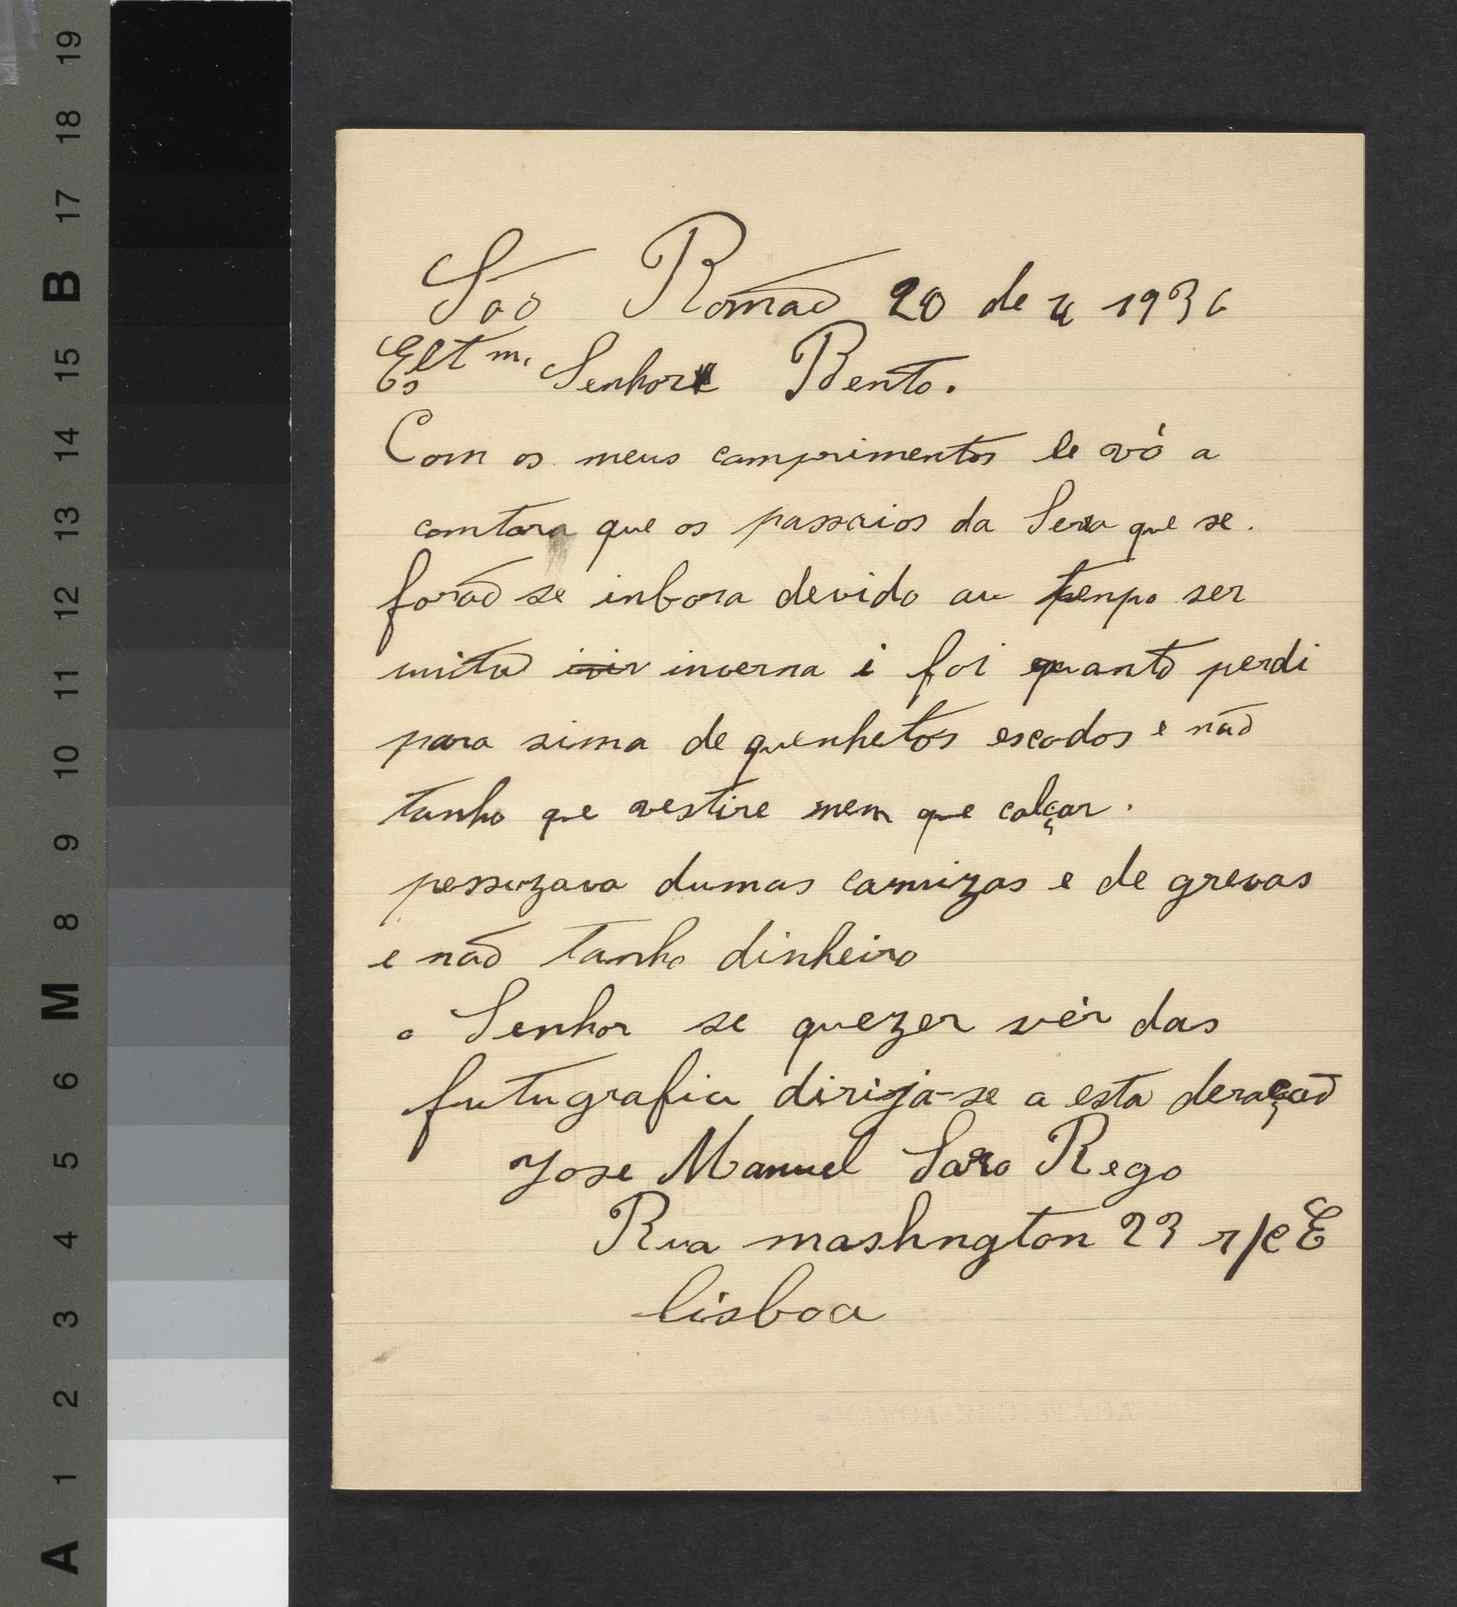 São Romão 20 de 4 1936
Senhor Bento.
Com os meus comprimentos le vó a
comtara que os passaios da Sera que se.
forão se inbora devido au tenpo ser
muito inverna i foi quanto perdi
para sima de quenhetos escodos e não
tanho que vestire mem que calçar.
pessuzava dumas camizas e de grevas
e não tanho dinheiro
o Senhor se quezer vér das
futugrafia dirija-se a esta deração
Jose Manuel Saro Rego
Rua mashngton 23 r/c E
lisboa
A 1 2 3 4 5 6 M 8 9 10 11 12 13 14 15 B 17 18 19